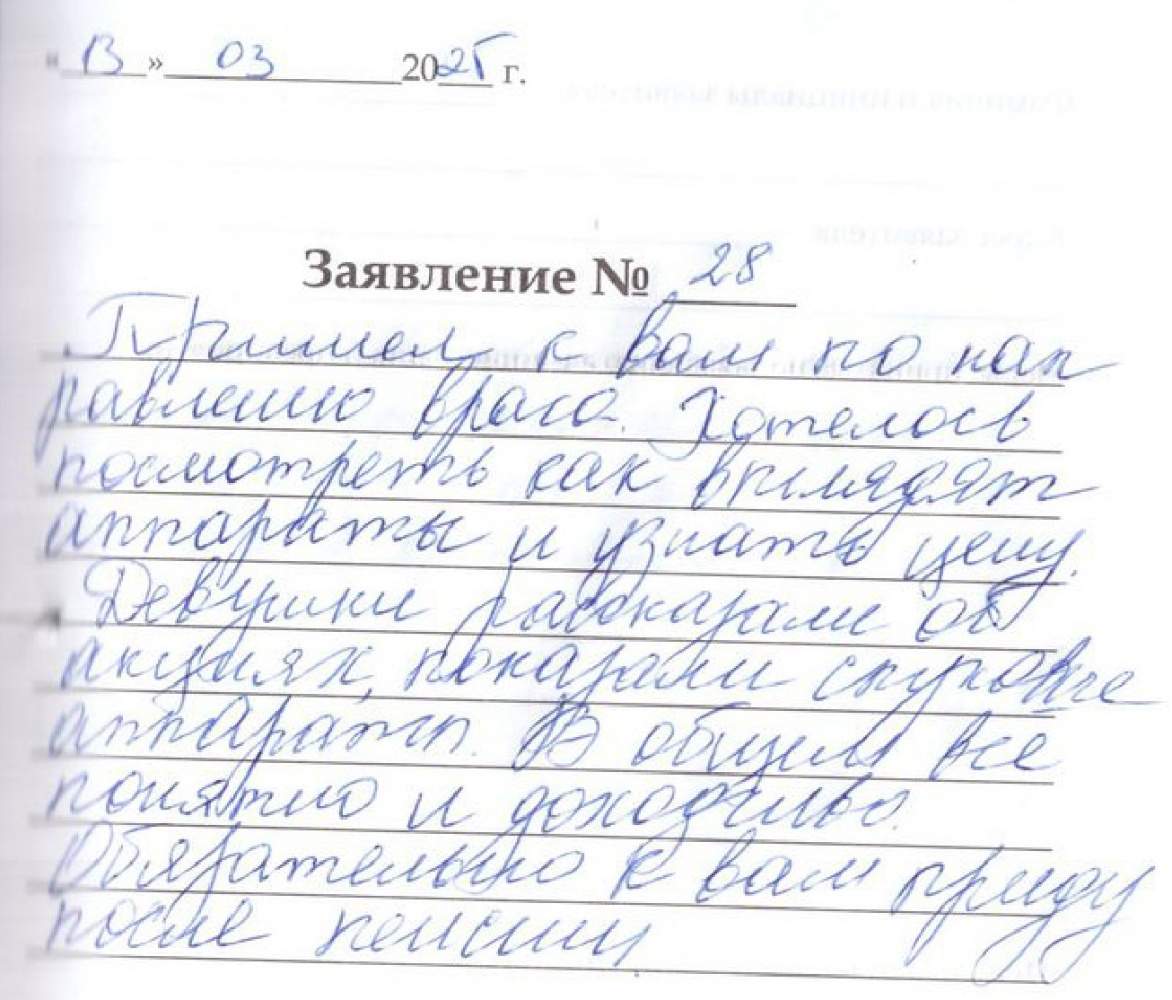 « 13 » 03 2025 г.
Заявление № 28
Пришел к вам по нап
равлению врача. Хотелось
посмотреть как выглядят
аппараты и узнать цену.
Девушки рассказали об
акциях, показали слуховые
аппараты. В общем все
понятно и доходчиво.
Обязательно к вам приду
после пенсии